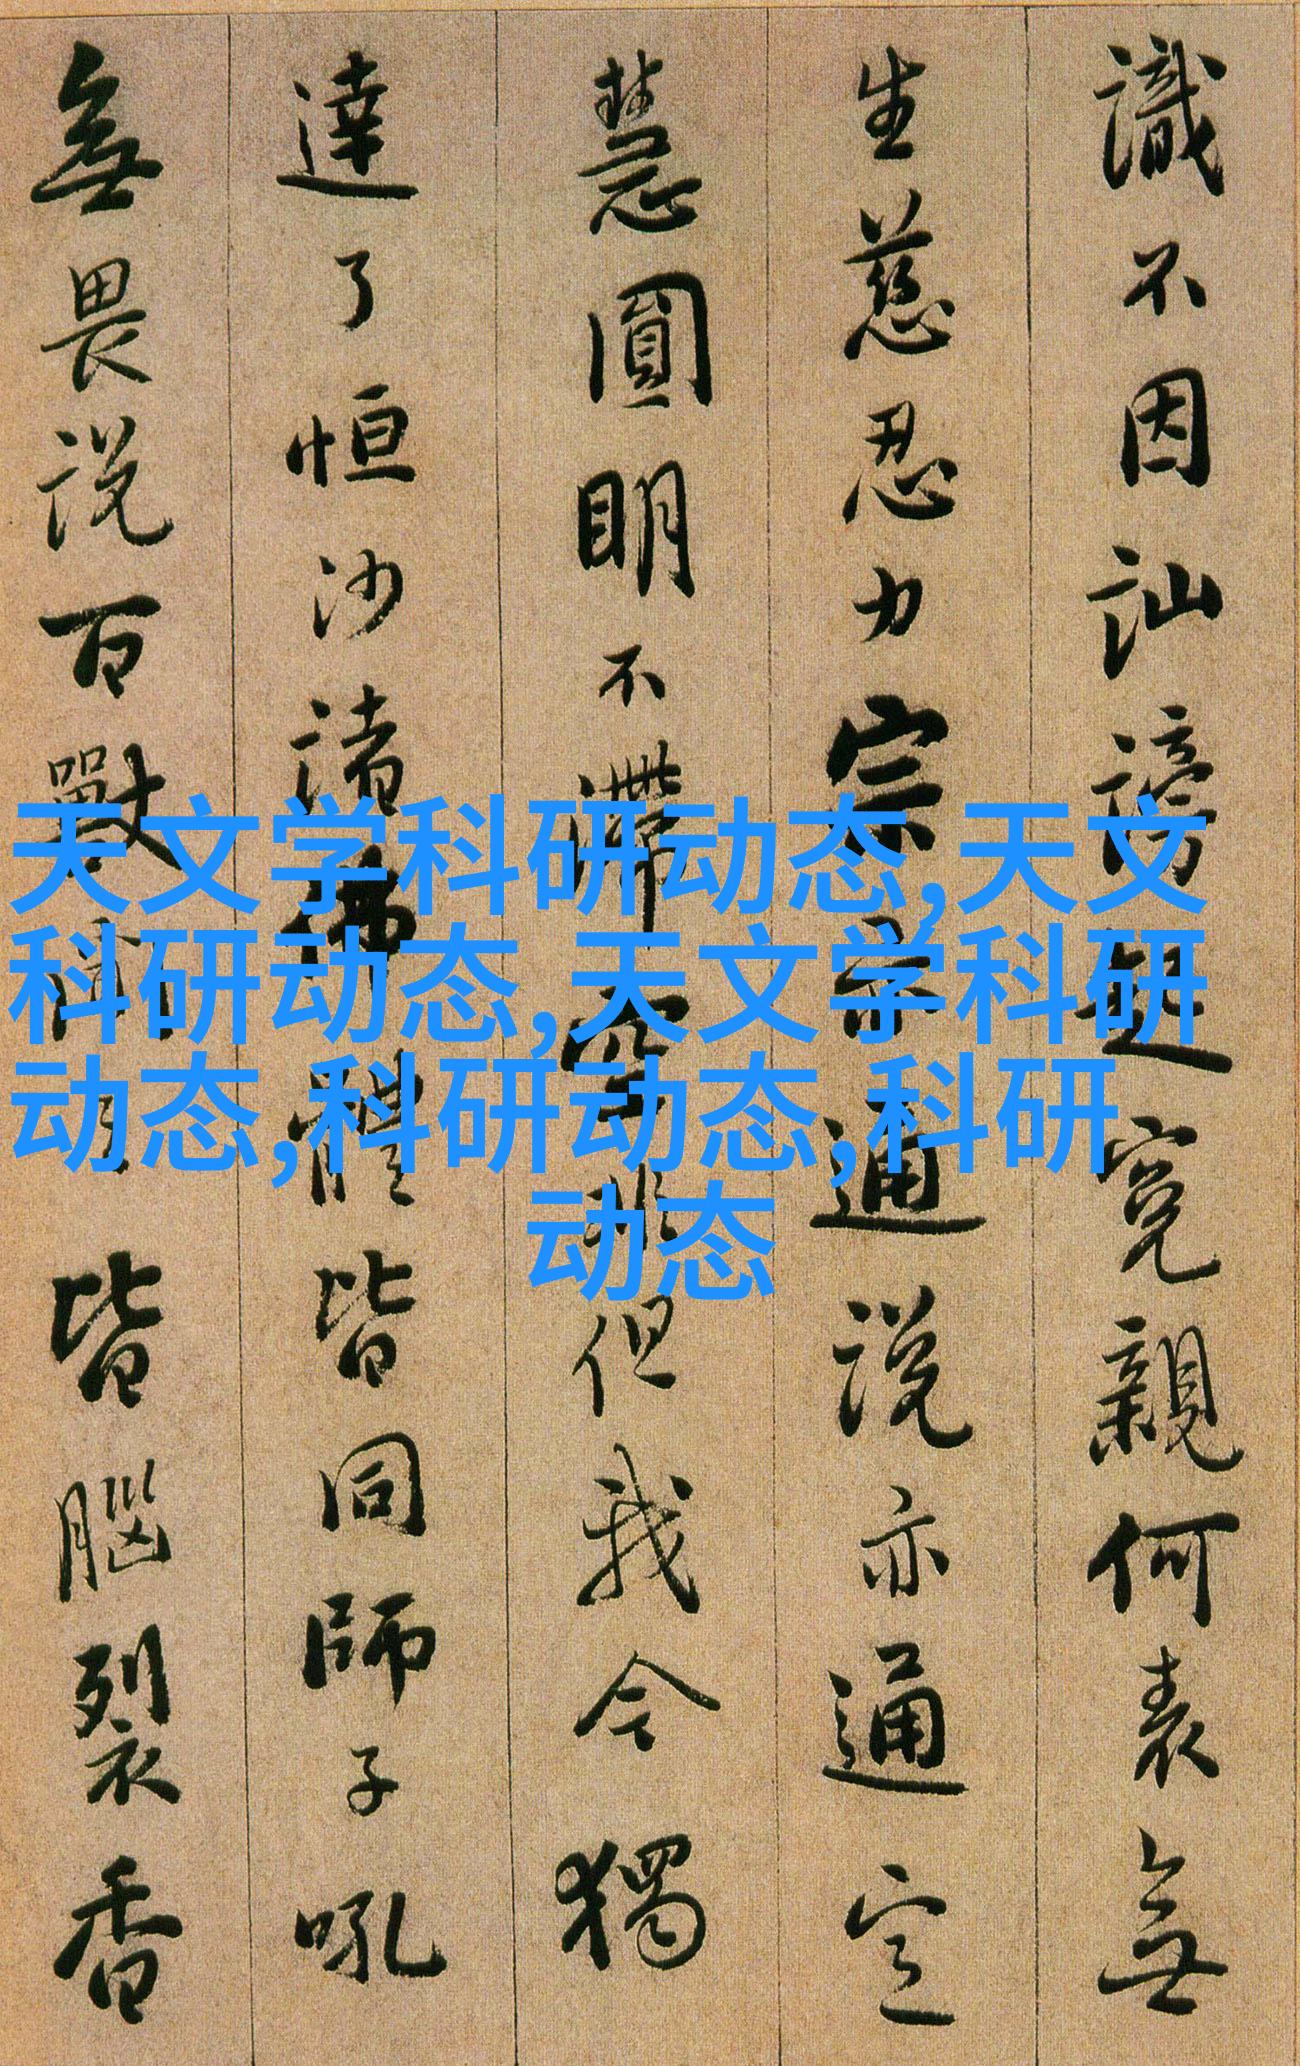 識不因訕謗起冤親何表無
生慈忍力宗亦通說亦通定
慧圓明不滯空非但我今獨
達了恒沙諸佛體皆同師子吼
無畏說百獸聞皆腦裂香
天文学科研动态,天文
科研动态,天文学科研
动态,科研动态,科研
动态